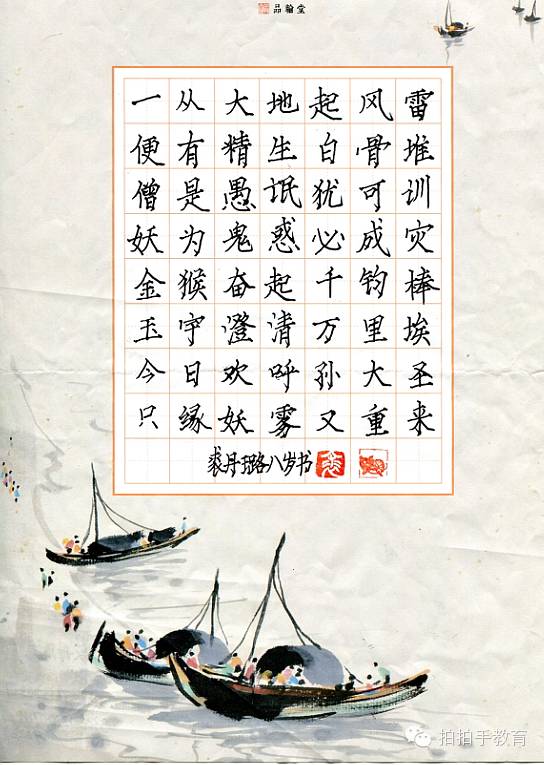 品翰堂
一从大地起风雷
便有精生白骨堆
僧是愚氓犹可训
妖为鬼惑必成灾
金猴奋起千钧棒
玉宇澄清万里埃
今日欢呼孙大圣
只缘妖雾又重来
裘丹璐八岁书
拍拍手教育